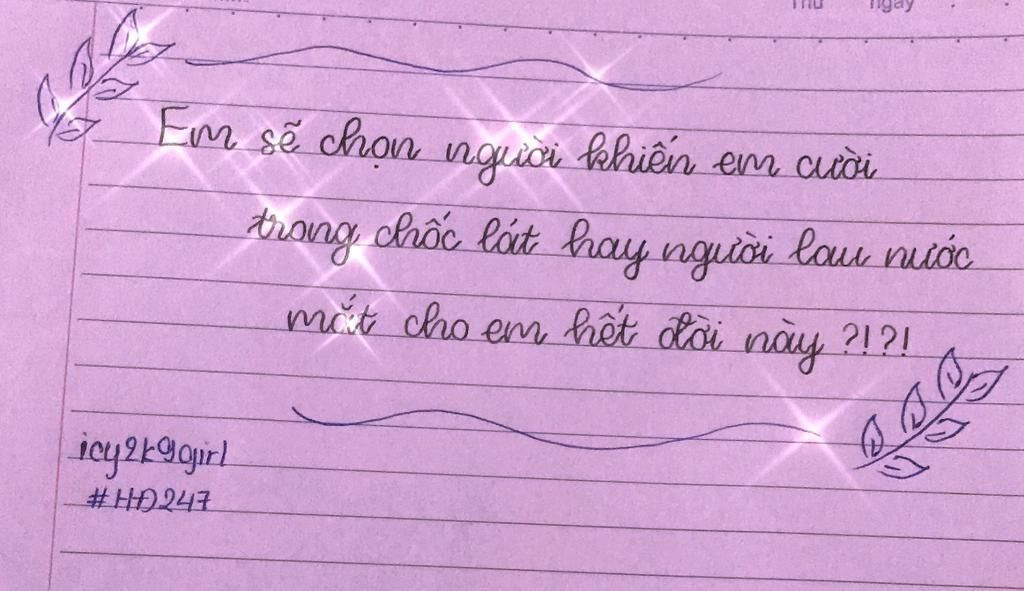 Thứ ngày
Em sẽ chọn người khiến em cười
trong chốc lát hay người lau nước
mắt cho em hết đời này ?!?!
icy2k9girl
#HĐ247